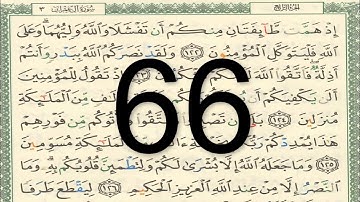 الجزء الرابع سورة آل عمران ٣
إِذْ هَمَّت طَّآئِفَتَانِ مِنكُمْ أَن تَفْشَلَا وَاللَّهُ وَلِيُّهُمَا وَعَلَى
اللَّهِ فَلْيَتَوَكَّلِ الْمُؤْمِنُونَ ١٢٢ وَلَقَدْ نَصَرَكُمُ اللَّهُ بِبَدْرٍ وَأَنتُمْ
أَذِلَّةٌ فَاتَّقُوا اللَّهَ إِذْ تَقُولُ لِلْمُؤْمِنِينَ
أَلَن يَكْفِيَكُمْ أَن الَفٍ مِّنَ الْمَلَٰٓئِكَةِ
مُنزَلِينَ ١٢٤ بَلَىٰ إِن تَصْبِرُوا وَتَتَّقُوا وَيَأْتُوكُم مِّن فَوْرِهِمْ
هَٰذَا يُمْدِدْكُمْ رَبُّكُم الْمَلَٰٓئِكَةِ مُسَوِّمِينَ
١٢٥ وَمَا جَعَلَهُ اللَّهُ إِلَّا بُشْرَىٰ لَكُمْ وَلِتَطْمَئِنَّ قُلُوبُكُم بِهِ وَمَا
النَّصْرُ إِلَّا مِنْ عِندِ اللَّهِ الْعَزِيزِ الْحَكِيمِ ١٢٦ لِيَقْطَعَ طَرَفًا
66